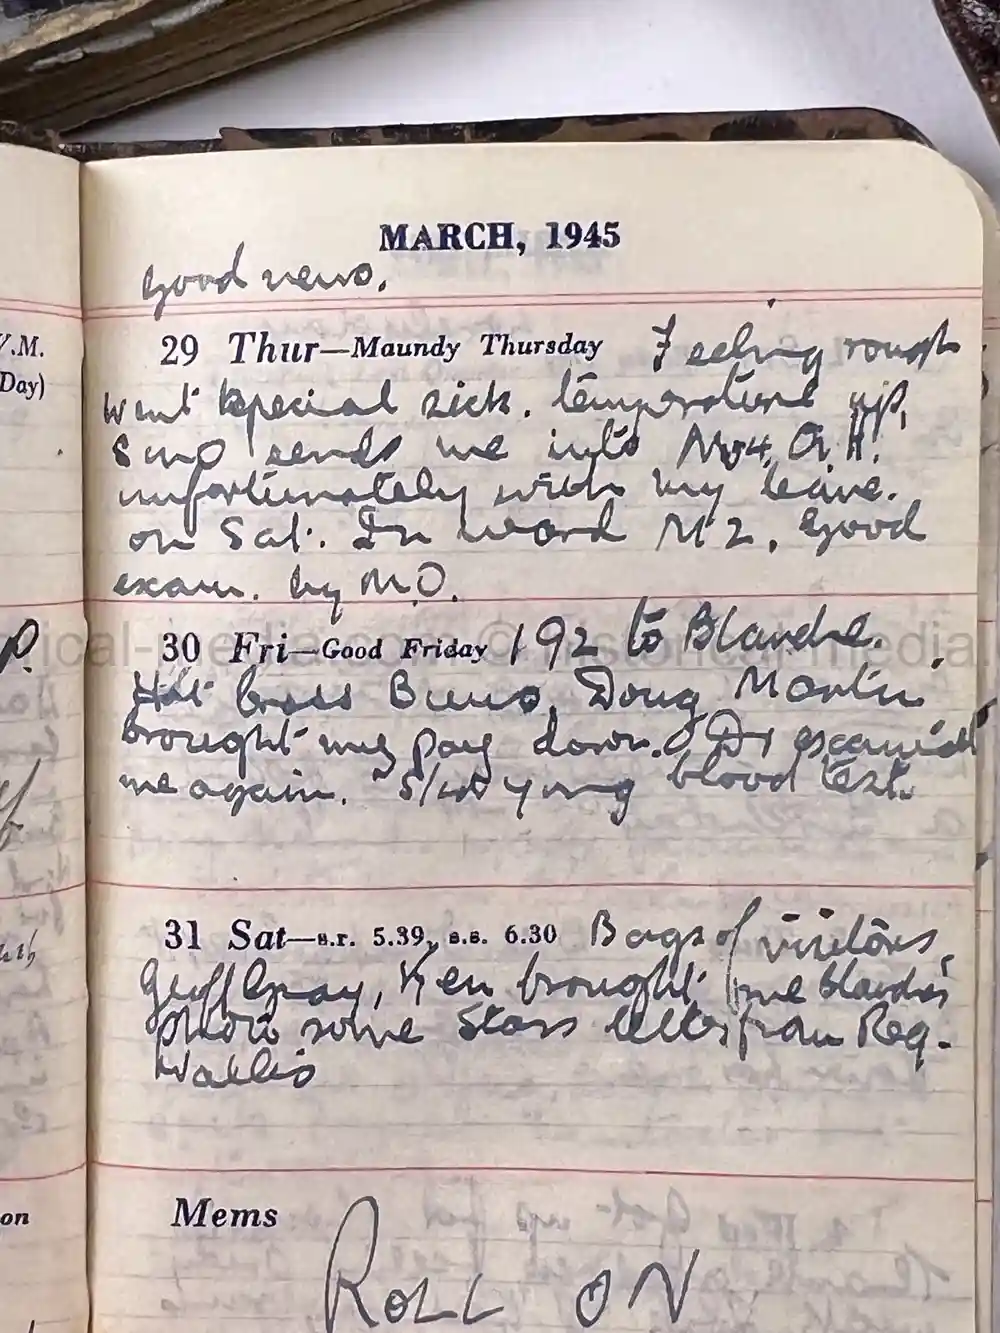 MARCH, 1945
good news.
29 Thur—Maundy Thursday Feeling rough
went special sick. temperature up,
SMO sends me into No 4, G.H.
unfortunately with my leave.
on Sat. In ward M2. Good
exam. by M.O.
30 Fri—Good Friday 192 to Blandie.
Hot Cross Buns, Doug Martin
brought my pay down. Dr examined
me again. young blood test.
31 Sat—s.r. 5.39, s.s. 6.30 Bags of visitors,
Geoff Gray, Ken brought me Blandie's
photo some Stars letter from Reg.
Wallis
Mems
ROLL ON
V.M.
Day)
P.
on
ical-media.com © historical-media.